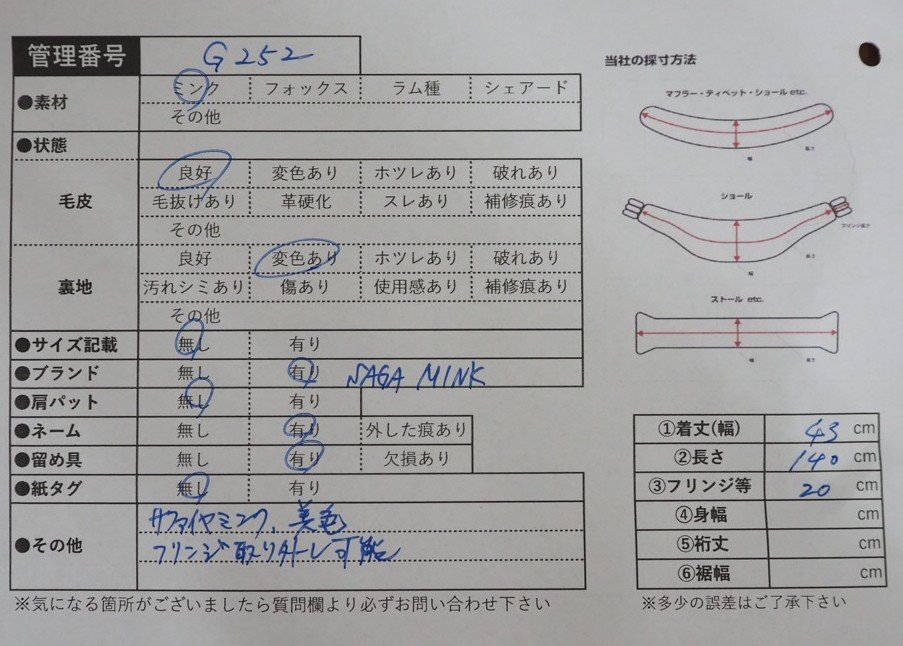 管理番号 G252
当社の採寸方法
●素材 ミンク フォックス ラム種 シェアード
その他
マフラー・ティペット・ショール etc.
幅 長さ
●状態
毛皮 良好 変色あり ホツレあり 破れあり
毛抜けあり 革硬化 スレあり 補修痕あり
その他
ショール
フリンジ長さ
幅 長さ
裏地 良好 変色あり ホツレあり 破れあり
汚れシミあり 傷あり 使用感あり 補修痕あり
その他
ストール etc.
幅 長さ
●サイズ記載 無し 有り
●ブランド 無し 有り SAGA MINK
●肩パット 無し 有り
●ネーム 無し 有り 外した痕あり
●留め具 無し 有り 欠損あり
●紙タグ 無し 有り
●その他 サファイヤミンク、美色
フリンジ取り外し可能
①着丈(幅) 43 cm
②長さ 140 cm
③フリンジ等 20 cm
④身幅 cm
⑤裄丈 cm
⑥裾幅 cm
※気になる箇所がございましたら質問欄より必ずお問い合わせ下さい
※多少の誤差はご了承下さい